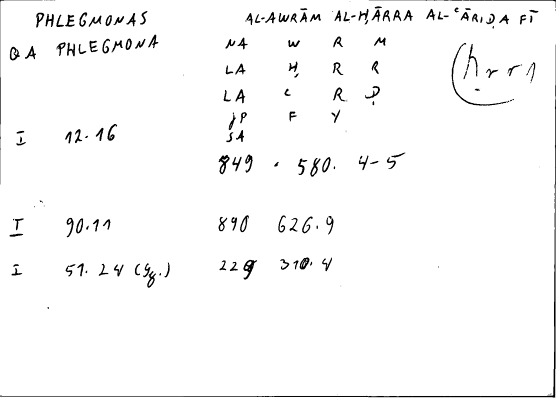 PHLEGMONAS AL-AWRĀM AL-ḤĀRRA AL-ʿĀRIḌA FĪ
QA PHLEGMONA NA W R M
LA Ḥ R R (ḥrr1
LA ʿ R Ḍ
JP F Y
I 12.16 SA
849 . 580. 4-5
I 90.11 890 626.9
I 51.24 229 310.4